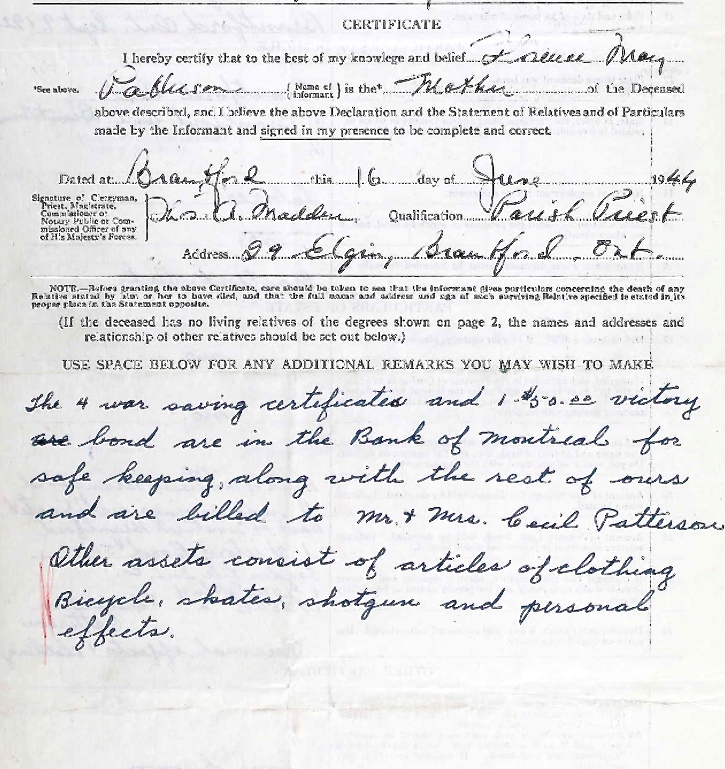 CERTIFICATE
I hereby certify that to the best of my knowlege and belief Florence May
*See above. Patterson {Name of Informant} is the* Mother of the Deceased
above described, and I believe the above Declaration and the Statement of Relatives and of Particulars
made by the Informant and signed in my presence to be complete and correct.
Dated at Brantford this 16 day of June 1944
Signature of Clergyman,
Priest, Magistrate,
Commissioner or
Notary Public or Com-
missioned Officer of any
of His Majesty's Forces.
Thos. A. Madden Qualification Parish Priest
Address 29 Elgin, Brantford. Ont.
NOTE.—Before granting the above Certificate, care should be taken to see that the informant gives particulars concerning the death of any
Relative stated by him or her to have died, and that the full name and address and age of each surviving Relative specified is stated in its
proper place in the Statement opposite.
(If the deceased has no living relatives of the degrees shown on page 2, the names and addresses and
relationship of other relatives should be set out below.)
USE SPACE BELOW FOR ANY ADDITIONAL REMARKS YOU MAY WISH TO MAKE
The 4 war saving certificates and 1 $50.00 victory
are bond are in the Bank of Montreal for
safe keeping, along with the rest of ours
and are billed to Mr. & Mrs. Cecil Patterson
Other assets consist of articles of clothing
Bicycle, skates, shotgun and personal
effects.